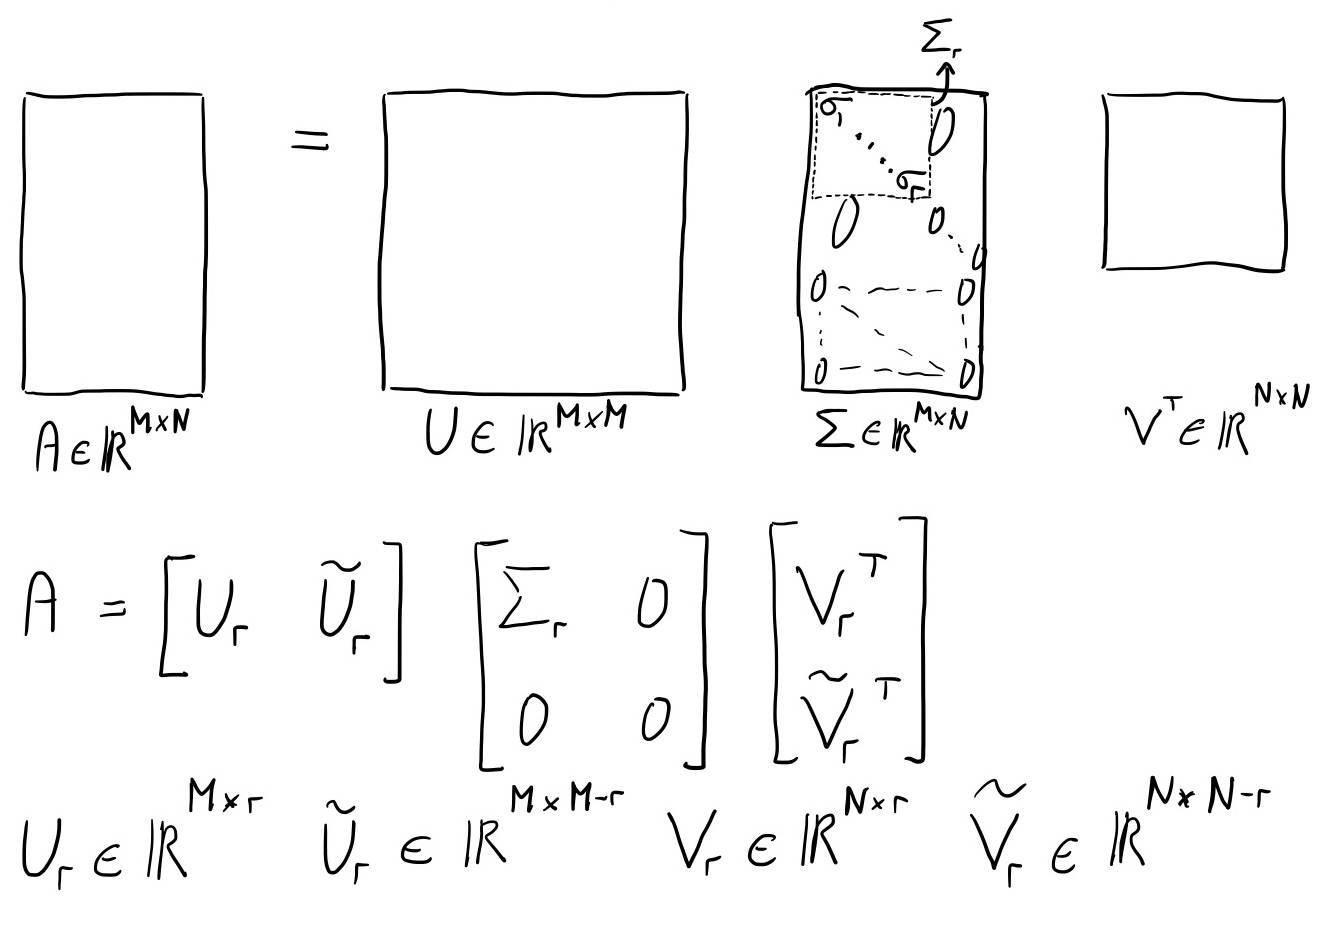 Σᵣ
=
σ₁ 0
⋱
σᵣ
0 0
⋱
0
0 – – – 0
0 – – – 0
A ∈ ℝ^{M×N} U ∈ ℝ^{M×M} Σ ∈ ℝ^{M×N} Vᵀ ∈ ℝ^{N×N}
A = [Uᵣ Ũᵣ] [Σᵣ 0 Vᵣᵀ
0 0] Ṽᵣᵀ]
Uᵣ ∈ ℝ^{M×r} Ũᵣ ∈ ℝ^{M×M-r} Vᵣ ∈ ℝ^{N×r} Ṽᵣ ∈ ℝ^{N×N-r}